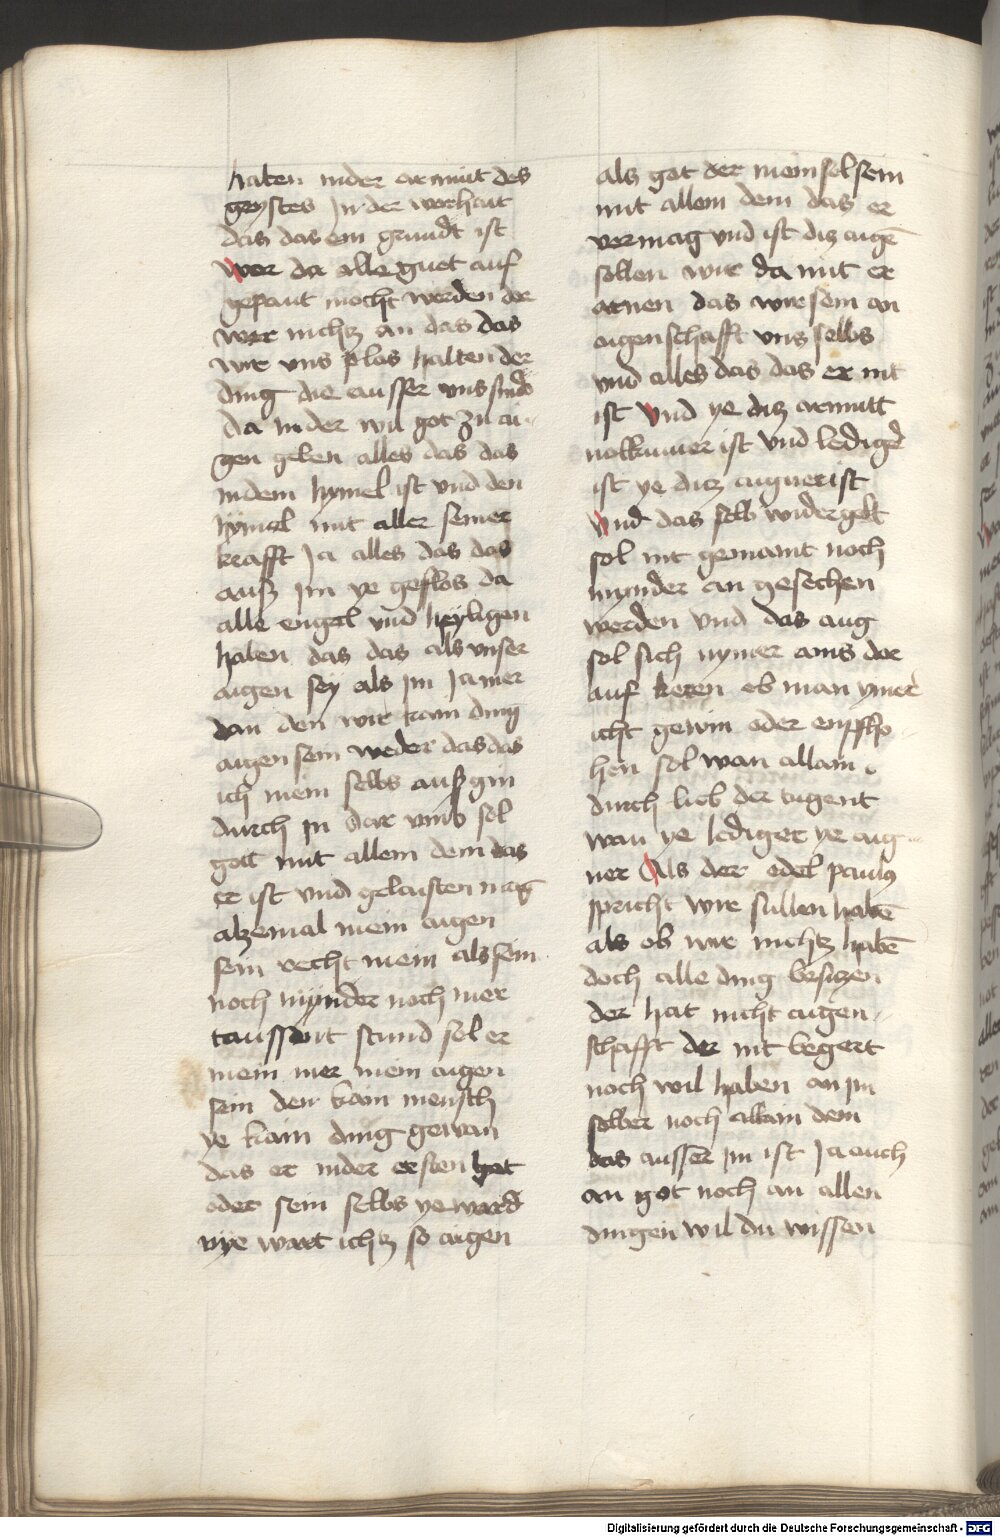 haben in der armut des
geystes In der worhait
das das ein grundt ist
wer da alle guet auf
gepaut mocht werden der
wer nichtz an das das
wir uns plos halten der
ding die ausser uns sind
Da in der wil got zu ai-
gen geben alles das das
in dem hymel ist und den
hymel mit aller seiner
krafft Ja alles das das
ausz im ye geflos da
alle engel und heyligen
haben das das als unser
aigen sey als im Jamer
dan den wir kain ding
aigen sein weder das das
ich mein selbs ausgin
durch in dar umb sol
got mit allem dem das
er ist und gelaisten mag
alzemal mein aigen
sein recht mein als sein
noch mynder noch mer
taussent stund sol er
mein mer mein aigen
sein den kain mensch
ye kain ding gewan
das er in der ersten hat
oder sein selbs ye ward
nye wart ichtz so aigen
als got der mein sol sein
mit allem dem das er
vermag und ist diz aigē
sollen wir da mit er
arnen das wir sein an
aigenschafft uns selbs
und alles das das er nit
ist Und ye diz armutt
volkumer ist und lediger
ist ye diz aigner ist
Und das selb widergelt
sol nit gemaint noch
mynder an gesechen
werden und das aug
sol sich nymer ains dar
auf keren ob man ymer
icht gewin oder enpfho
hen sol wan allain
durch lieb der tugent
wan ye lediger ye aig-
ner Als der edel paulus
spricht wir sullen habē
als ob wir nichtz habē
doch alle ding besiczen
der hat nicht aigen-
schafft der nit begert
noch wil haben an im
selber noch allain dem
das ausser im ist Ja auch
an got noch an allen
dingen wil du wissen
Digitalisierung gefördert durch die Deutsche Forschungsgemeinschaft - DFG